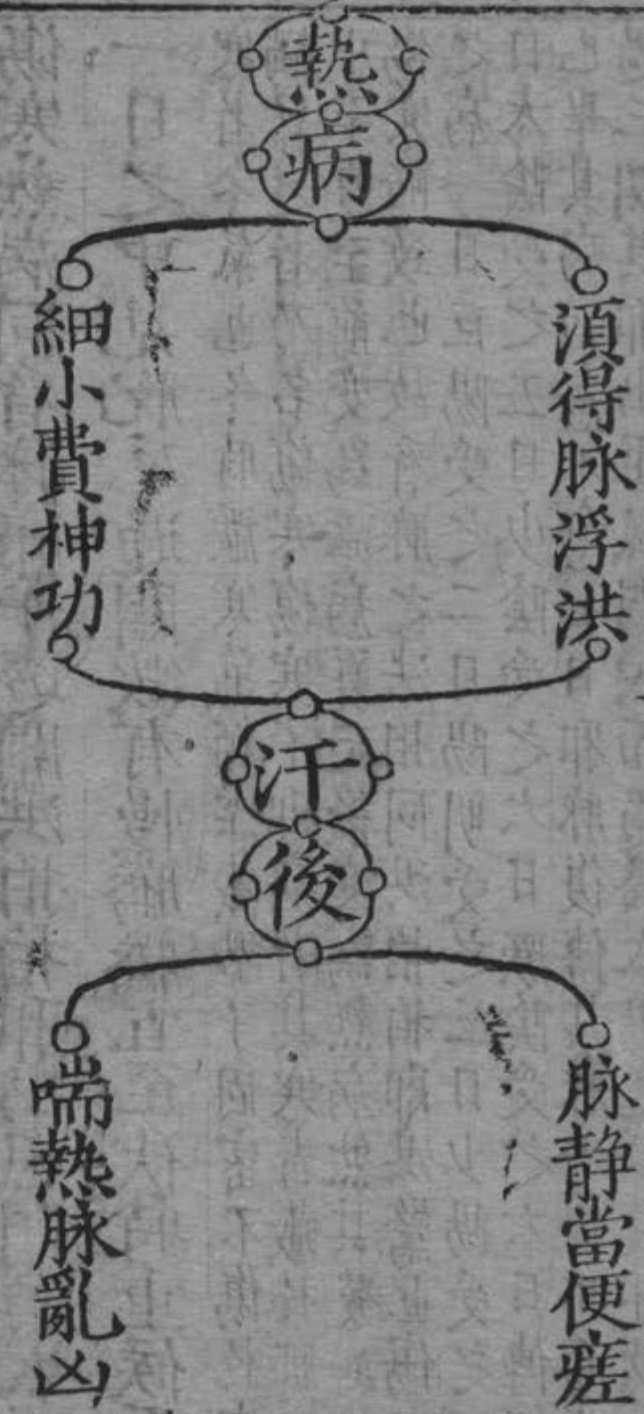 熱病
須得脉浮洪
細小費神功
汗後
脉静當便瘥
喘熱脉亂凶